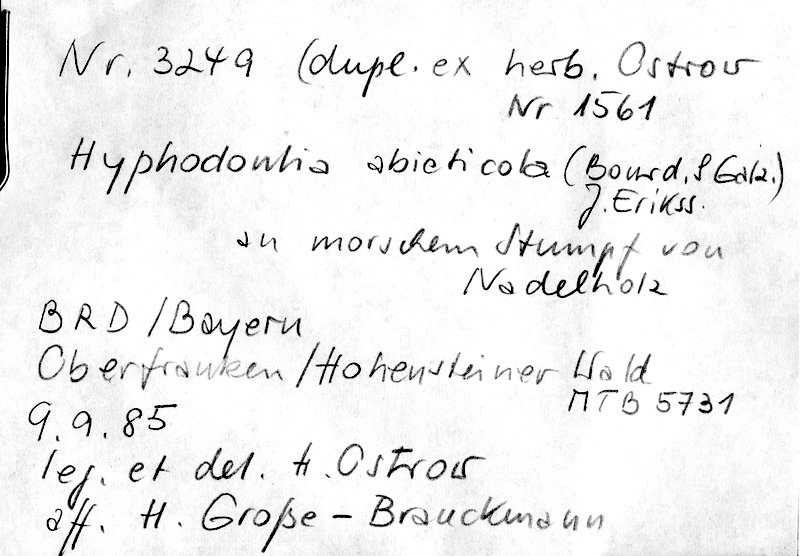 Nr. 3249 (dupl. ex herb. Ostrow
Nr 1561
Hyphodontia abieticola (Bourd. & Galz.)
J. Erikss.
an morschem Stumpf von
Nadelholz
BRD / Bayern
Oberfranken / Hohensteiner Wald
MTB 5731
9.9.85
leg. et det. H. Ostrow
aff. H. Große - Brauckmann